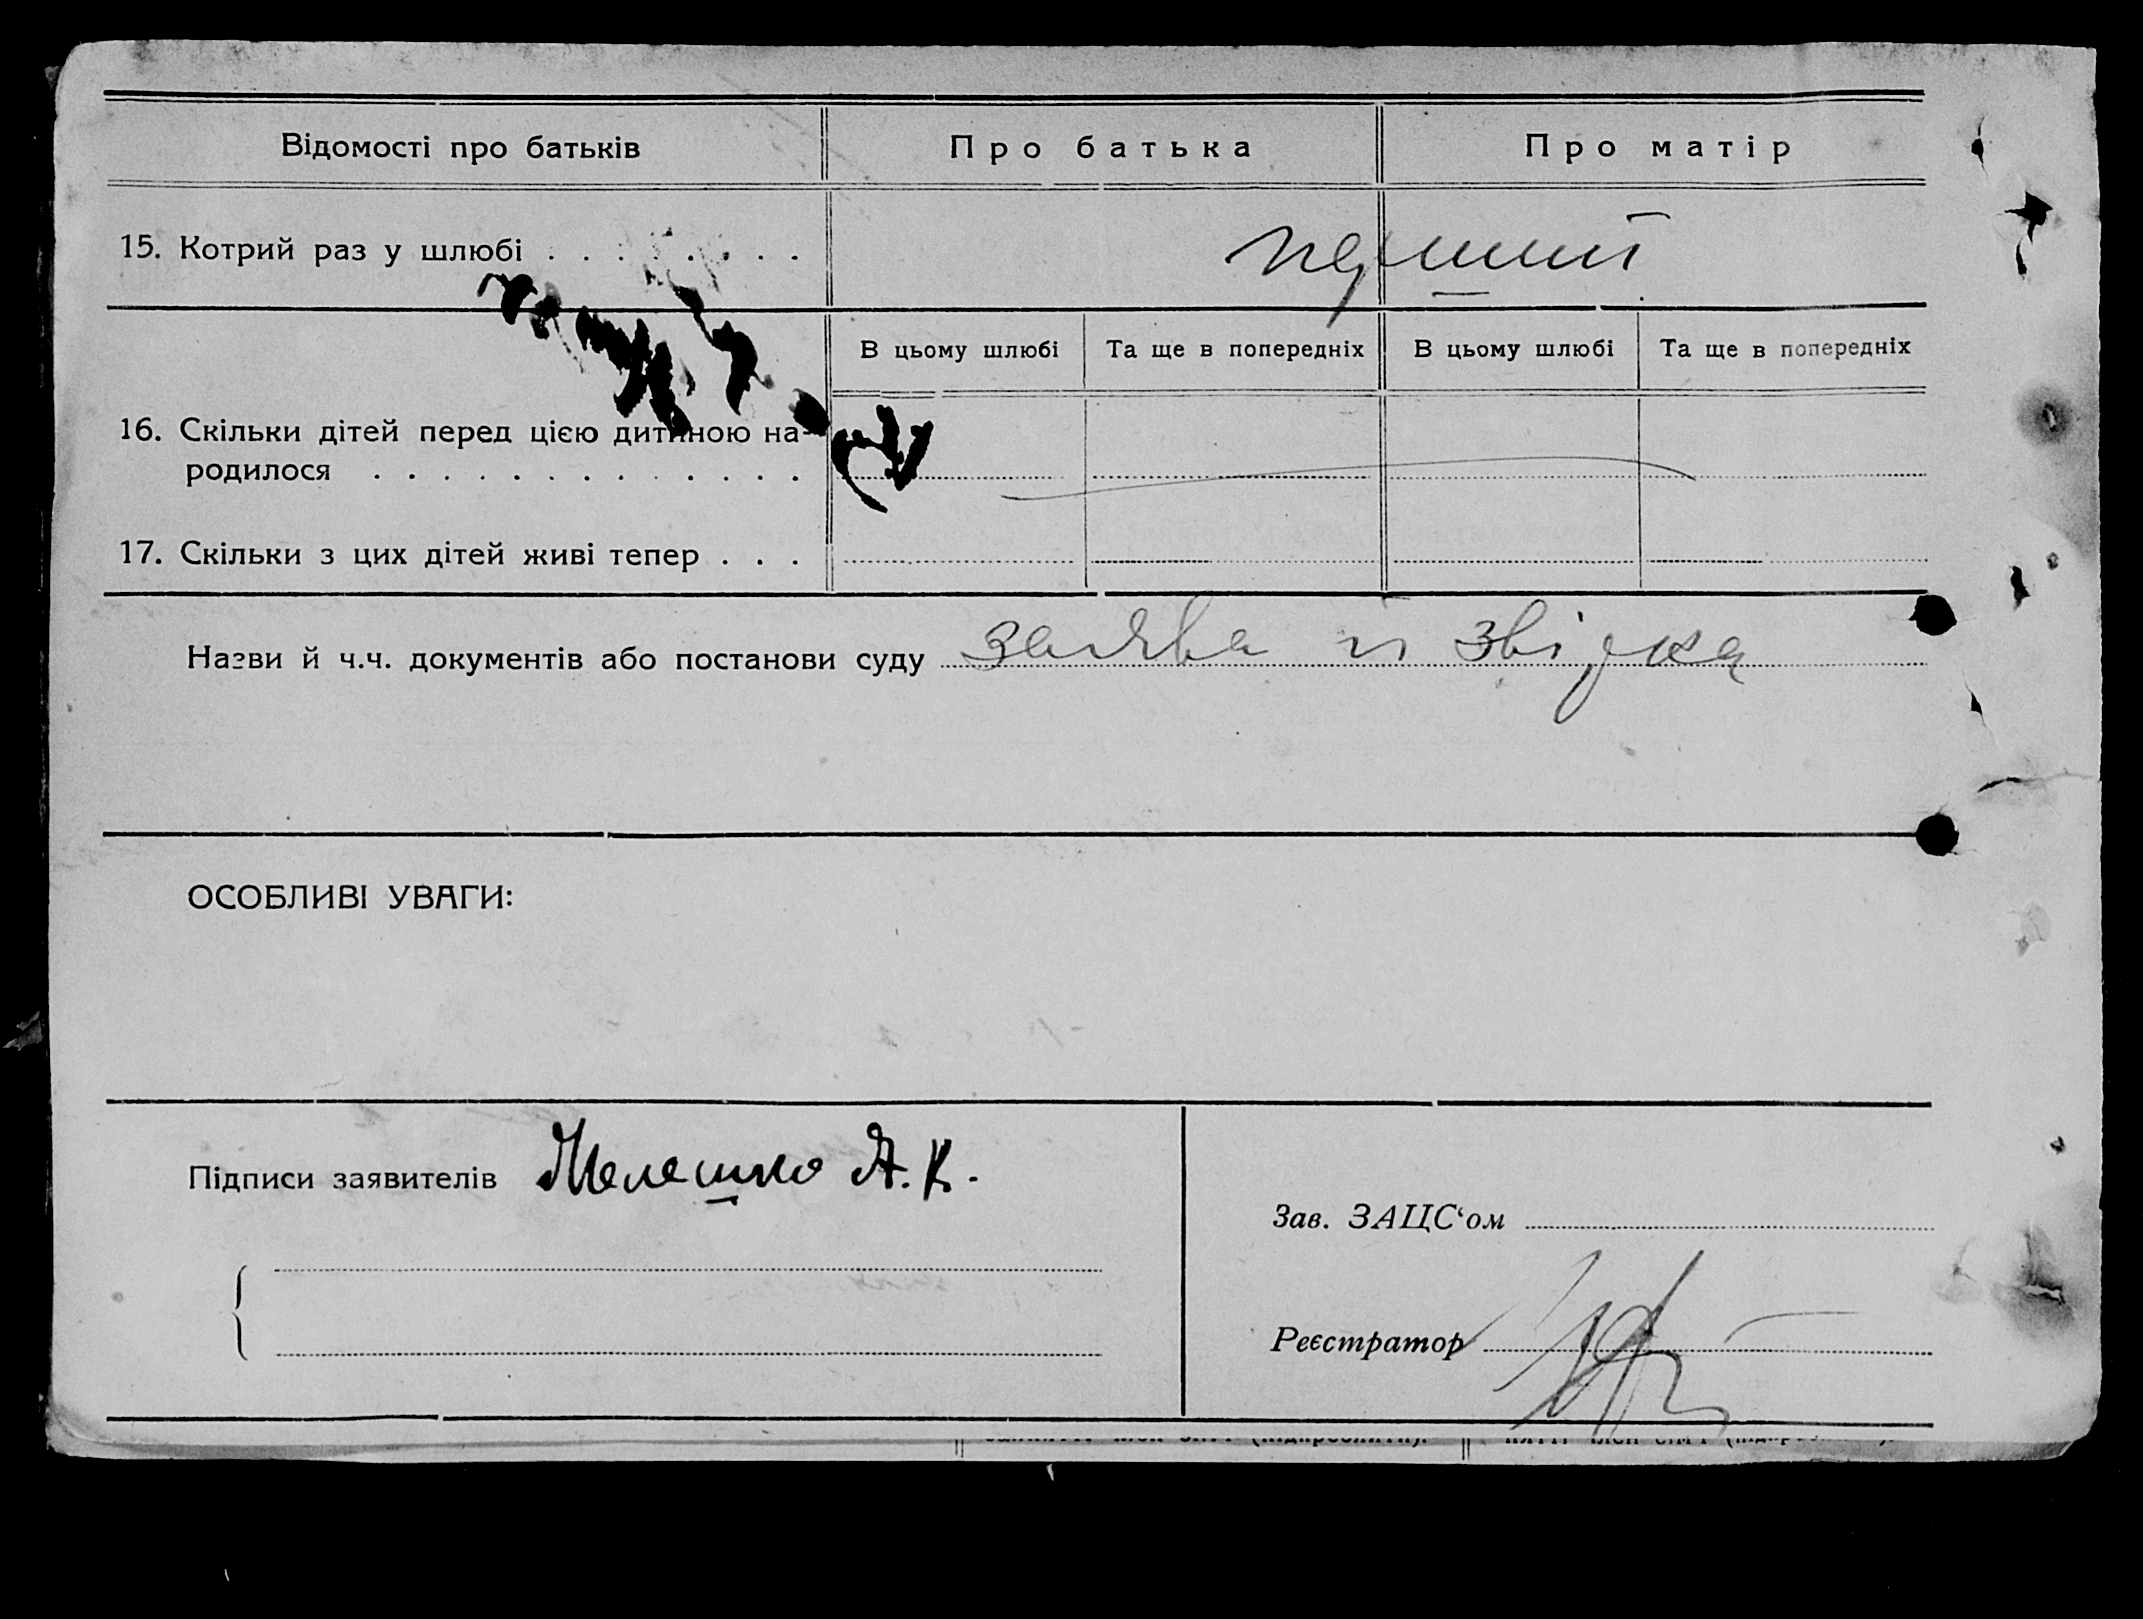 Відомості про батьків Про батька Про матір
15. Котрий раз у шлюбі . . . . . . . . перший
В цьому шлюбі Та ще в попередніх В цьому шлюбі Та ще в попередніх
16. Скільки дітей перед цією дитиною на-
родилося . . . . . . . . . . . . .
17. Скільки з цих дітей живі тепер . . .
Назви й ч.ч. документів або постанови суду заява й звідка
ОСОБЛИВІ УВАГИ:
Підписи заявителів Мелешко А. К.
Зав. ЗАЦС‘ом
Реєстратор